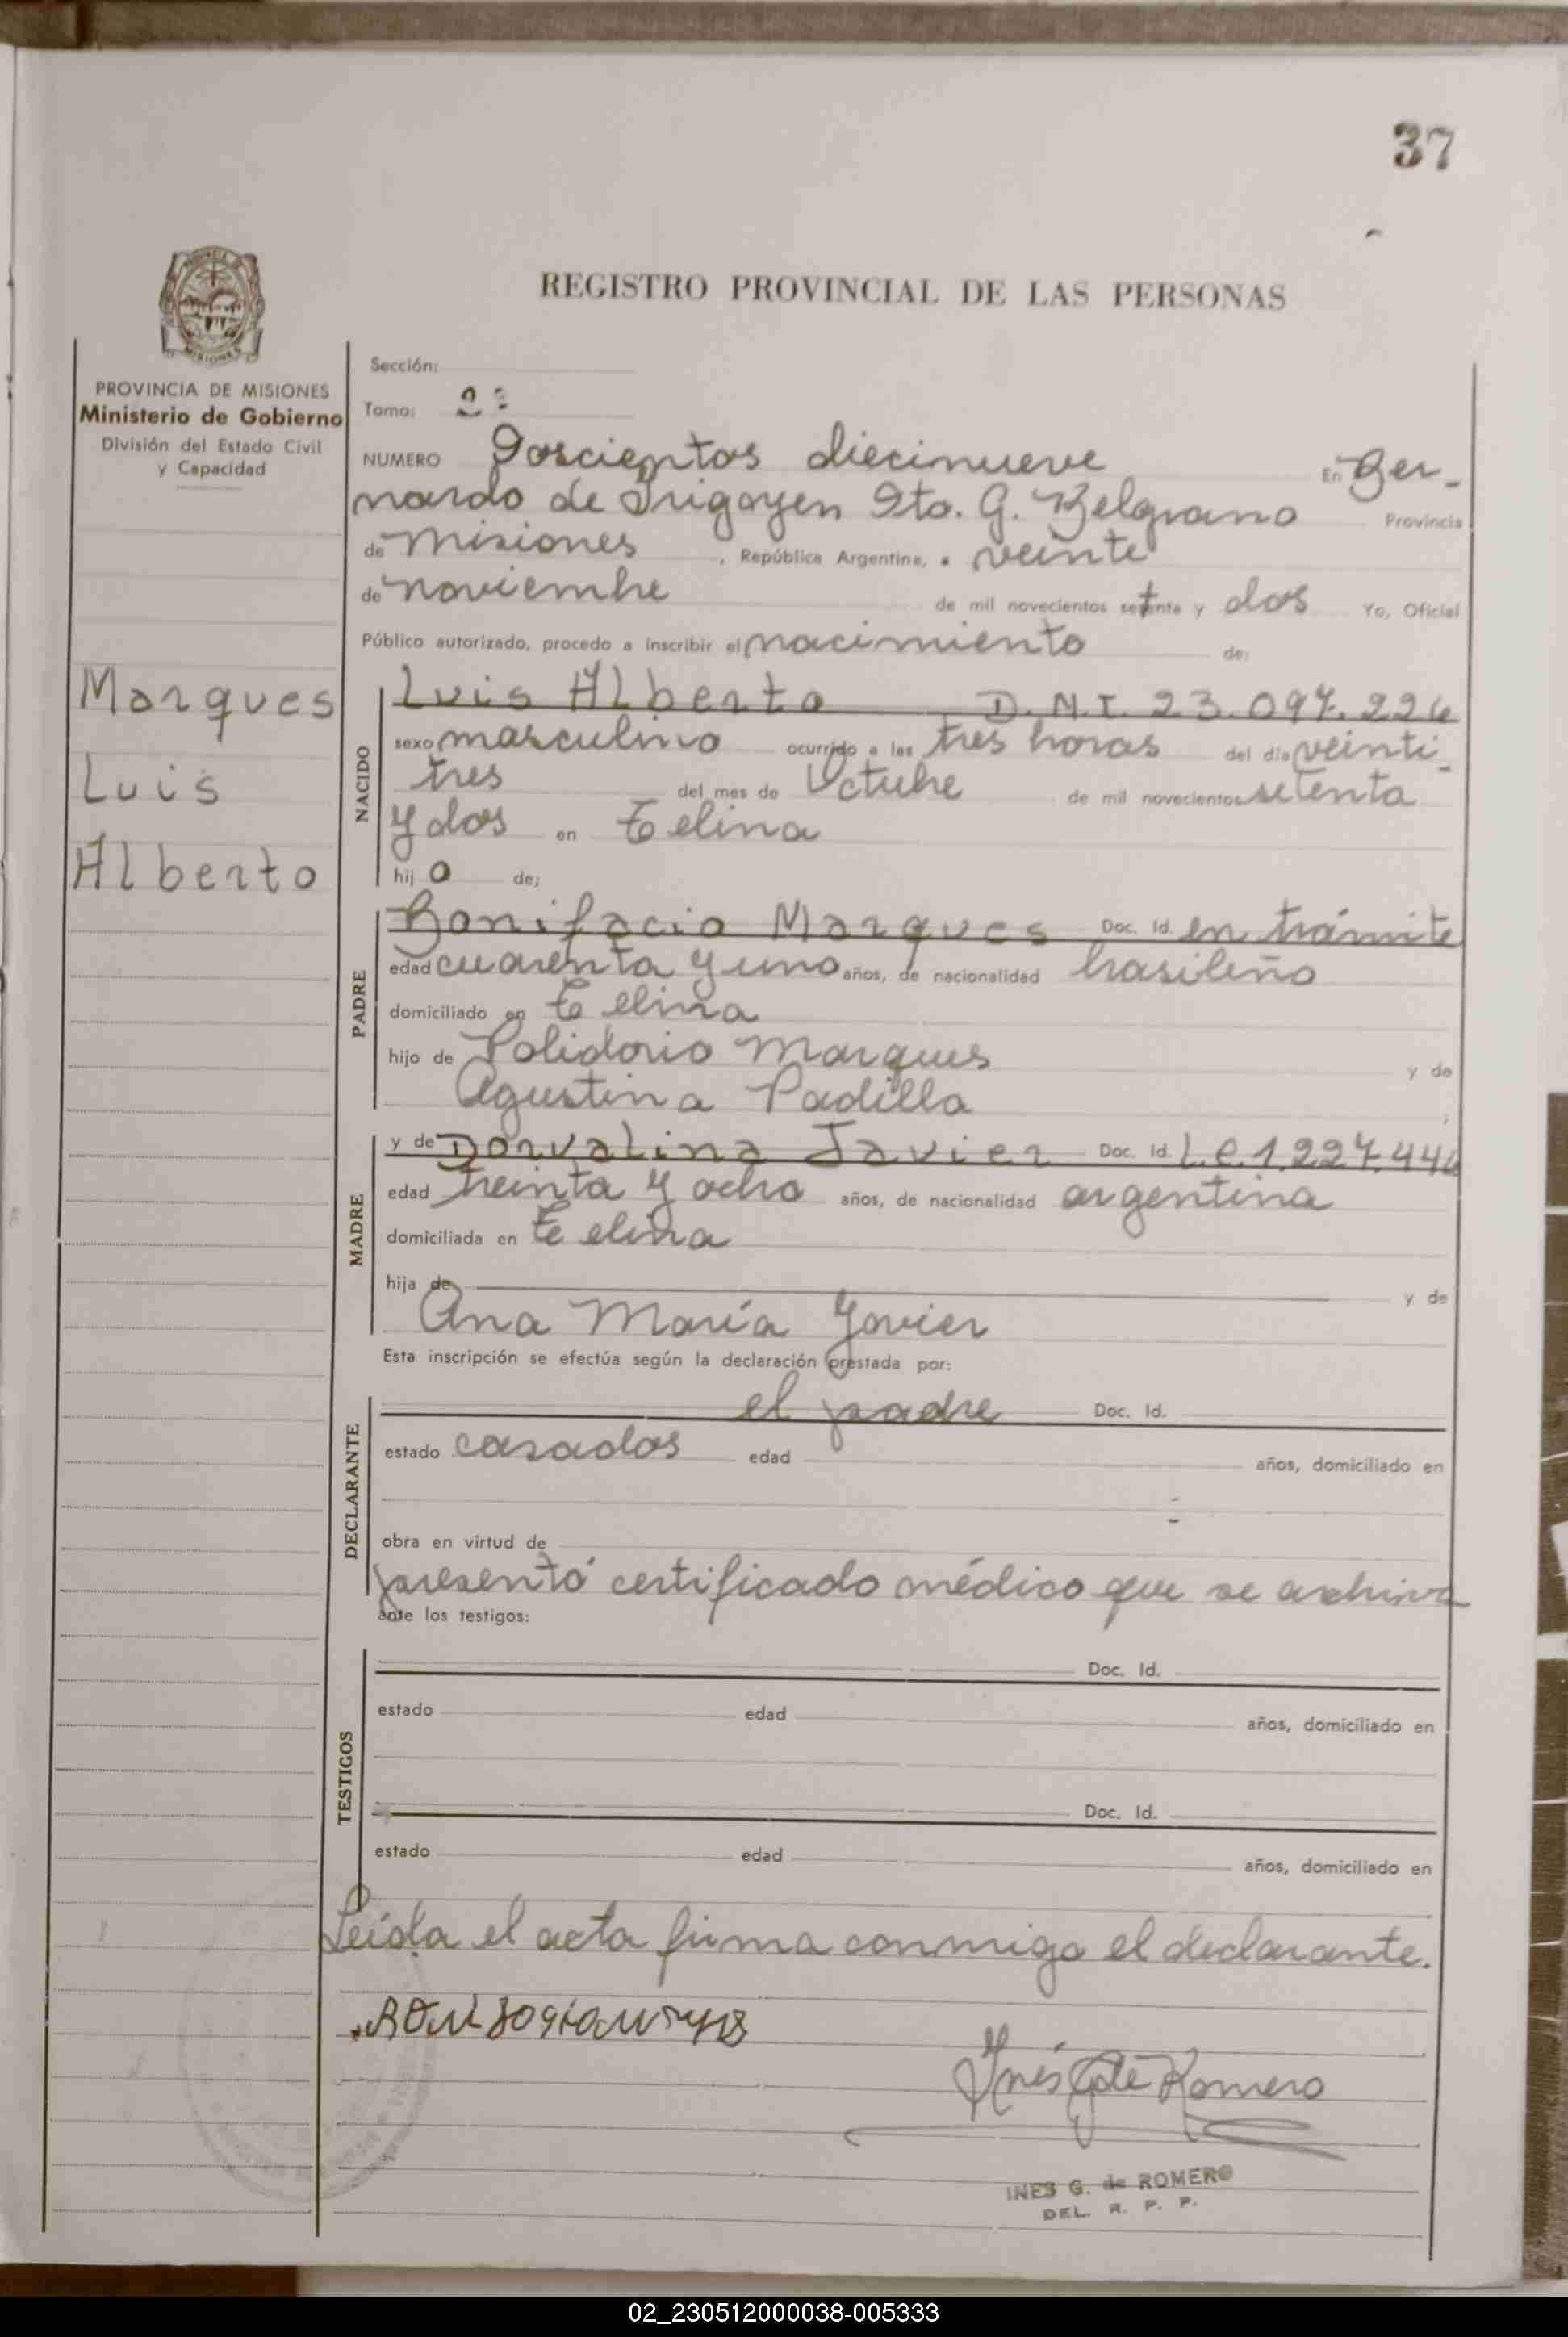 37
REGISTRO PROVINCIAL DE LAS PERSONAS
PROVINCIA DE MISIONES
Ministerio de Gobierno
División del Estado Civil
y Capacidad
Marques
Luis
Alberto
Sección:
Tomo: 2º
NUMERO Doscientos diecinueve En Ber-
nardo de Irigoyen Dto. G. Belgrano Provincia
de Misiones, República Argentina, a veinte
de noviembre de mil novecientos setenta y dos Yo, Oficial
Público autorizado, procedo a inscribir el nacimiento de:
NACIDO
Luis Alberto D.N.I. 23.097.226
sexo masculino ocurrido a las tres horas del día veinti-
tres del mes de Octubre de mil novecientos setenta
y dos en
hijo de;
PADRE
Bonifacio Marques Doc. Id. en trámite
edad cuarenta y uno años, de nacionalidad brasileño
domiciliado en
hijo de Polidorio Marques y de
Agustina Padilla
MADRE
y de Dorvalina Javier Doc. Id. L.C. 1.227.446
edad treinta y ocho años, de nacionalidad argentina
domiciliada en
hija de y de
Ana María Javier
Esta inscripción se efectúa según la declaración prestada por:
DECLARANTE
el padre Doc. Id.
estado casados edad años, domiciliado en
obra en virtud de
presentó certificado médico que se archiva
ante los testigos:
TESTIGOS
Doc. Id.
estado edad años, domiciliado en
Doc. Id.
estado edad años, domiciliado en
Leída el acta firma conmigo el declarante.
Inés G. de Romero
INES G. de ROMERO
DEL. R. P. P.
02_230512000038-005333